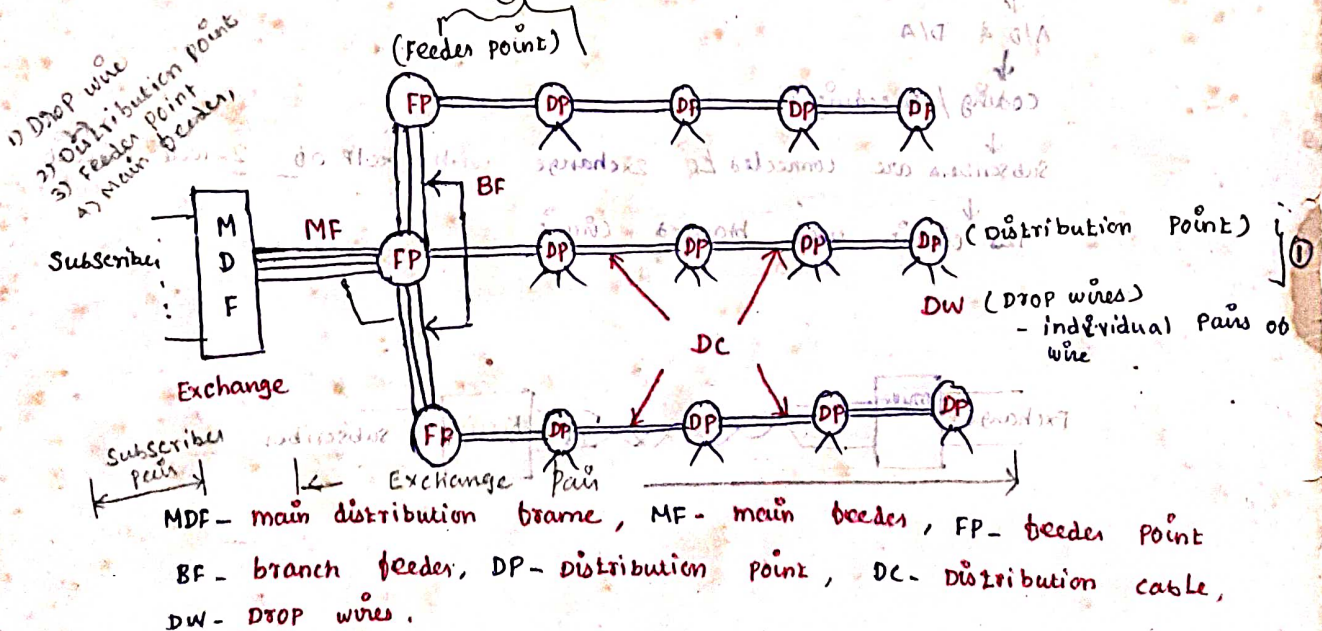 (Feeder point)
1) Drop wire
2) Distribution point
3) Feeder point
4) Main feeder,
FP DP DP DP DP
BF
MDF
MF
Subscriber
FP DP DP DP DP (Distribution Point)
1
DW (Drop wires)
- individual pairs of
wire
DC
Exchange
FP DP DP DP DP
Subscriber
pair
Exchange - Pair
MDF - main distribution frame, MF - main feeder, FP - feeder point
BF - branch feeder, DP - Distribution point, DC - Distribution cable,
DW - Drop wires.